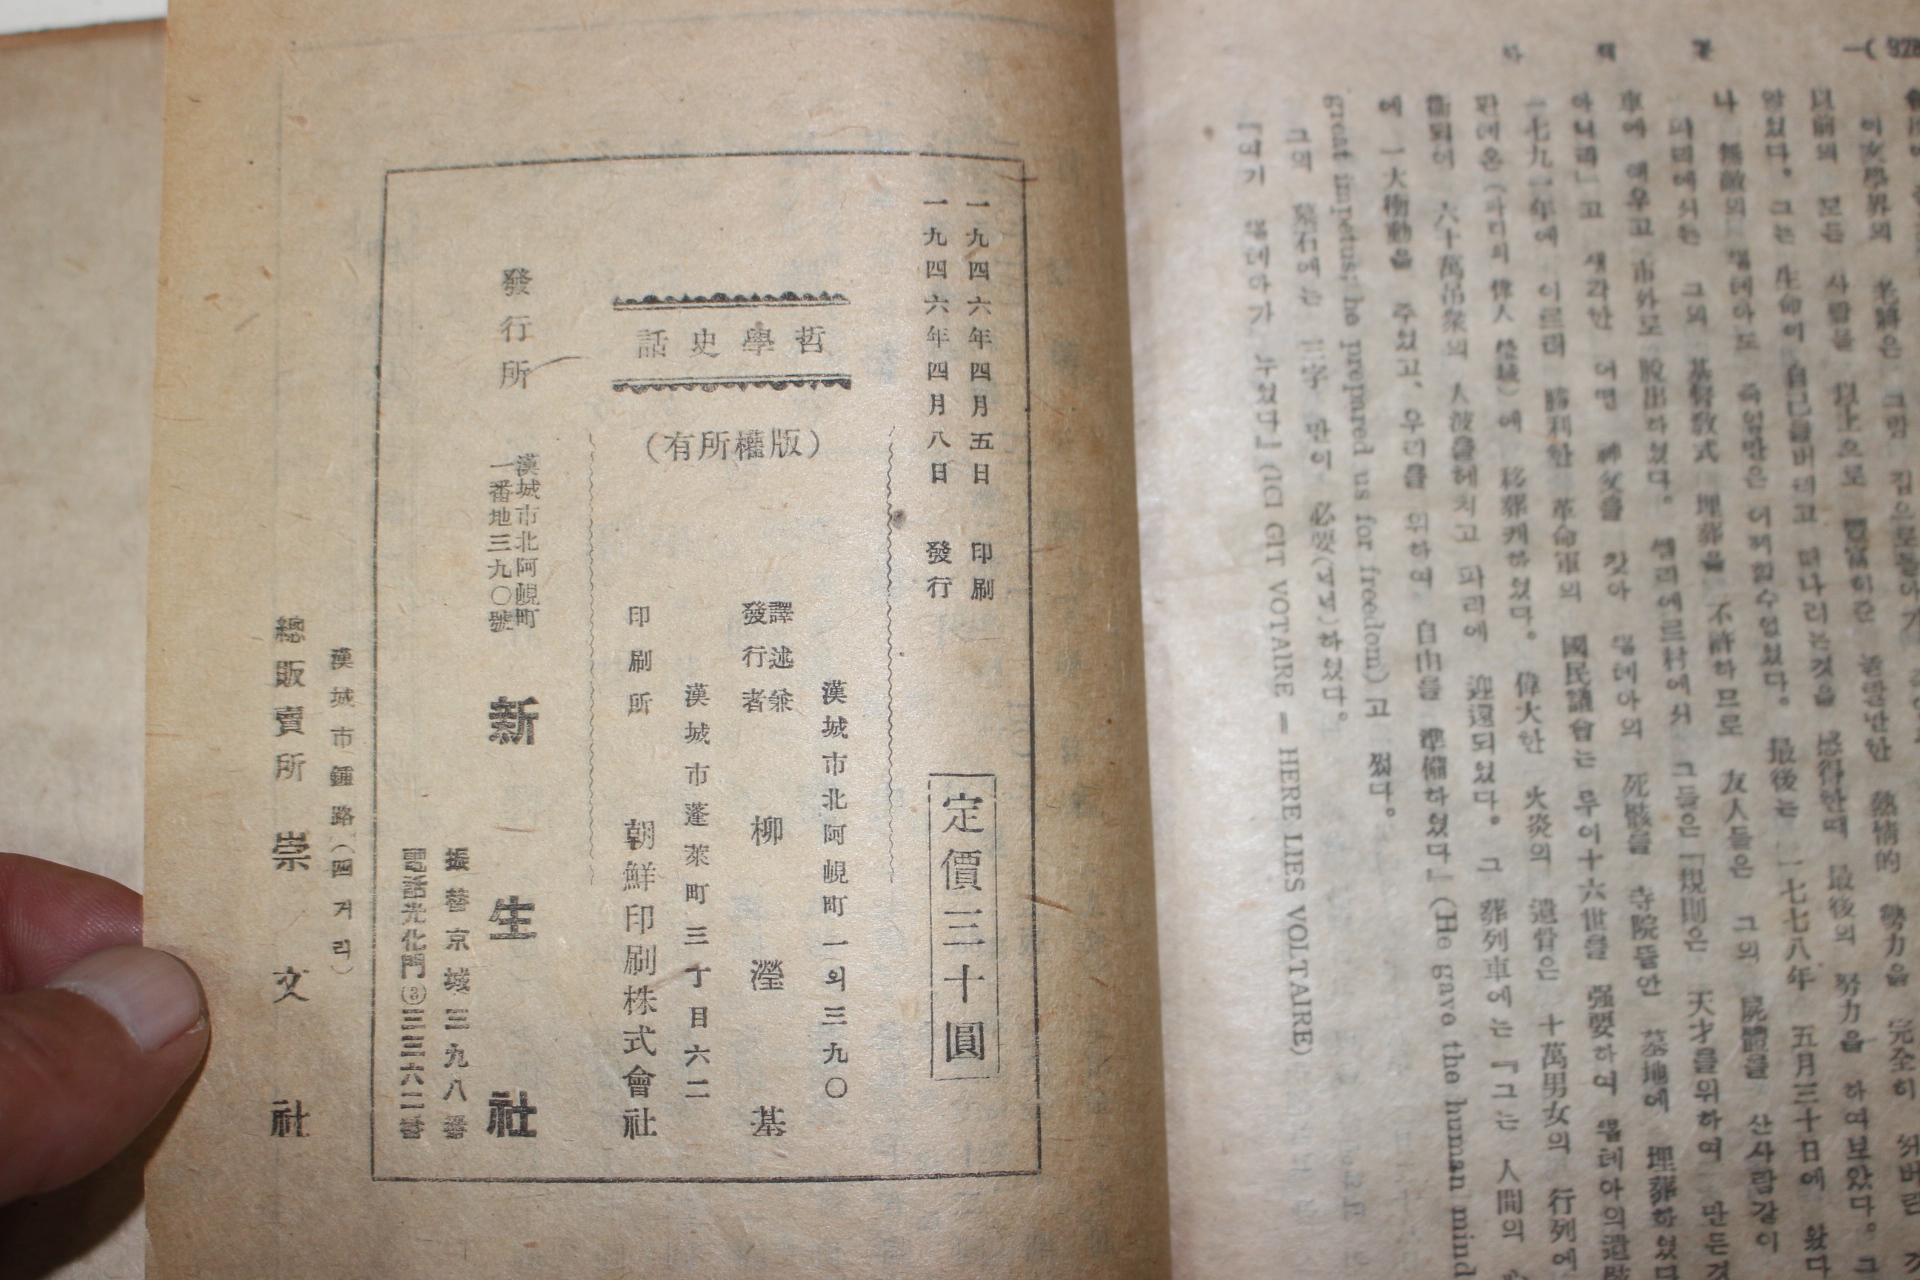 以前의 모든 사람들 以上으로 豊富히준
알었다。 그는 生命이 自己를버리고 떠나려는것을 感得한때 最後의 努力을 하여보았다。 그
나 無敵의 볼테아도 죽엄만은 어찌할수없었다。 最後는 一七七八年 五月三十日에 왔다
파리에서는 그의 基督敎式 埋葬을 不許하므로 友人들은 그의 屍體를 산사람같이
車에 애우고 市外로 脫出하였다。 쎌리에르村에서 그들은「規則은 天才를위하여 만든것
아니라」고 생각한 어떤 神父를 찾아 볼테아의 死骸를 寺院뜰안 墓地에 埋葬하였다
一七九一年에 이르러 勝利한 革命軍의 國民議會는 루이十六世를 强要하여 볼테아의遺骸
판테온(파리의 偉人墓域)에 移葬케하였다。 偉大한 火炎의 遺骨은 十萬男女의 行列에
衞되어 六十萬吊衆의 人波를헤치고 파리에 迎還되었다。 그 葬列車에는『그는 人間의 心
에 一大衝動을 주었고、우리를 위하여 自由를 準備하였다』(He gave the human mind
great impetus; he prepared us for freedom)고 썼다。
그의 墓石에는 三字 만이 必要(넉넉)하였다。
『여기 볼테아가 누웠다』(ICI GIT VOTAIRE — HERE LIES VOLTAIRE)
一九四六年四月五日 印刷
一九四六年四月八日 發行
定價三十圓
哲學史話
(版權所有)
漢城市北阿峴町一의三九〇
譯述兼
發行者 柳瀅基
漢城市蓬萊町三丁目六二
印刷所 朝鮮印刷株式會社
發行所
漢城市北阿峴町
一番地三九〇號
新生社
振替京城三九八番
電話光化門③三三六二番
漢城市鍾路(四거리)
總販賣所 崇文社